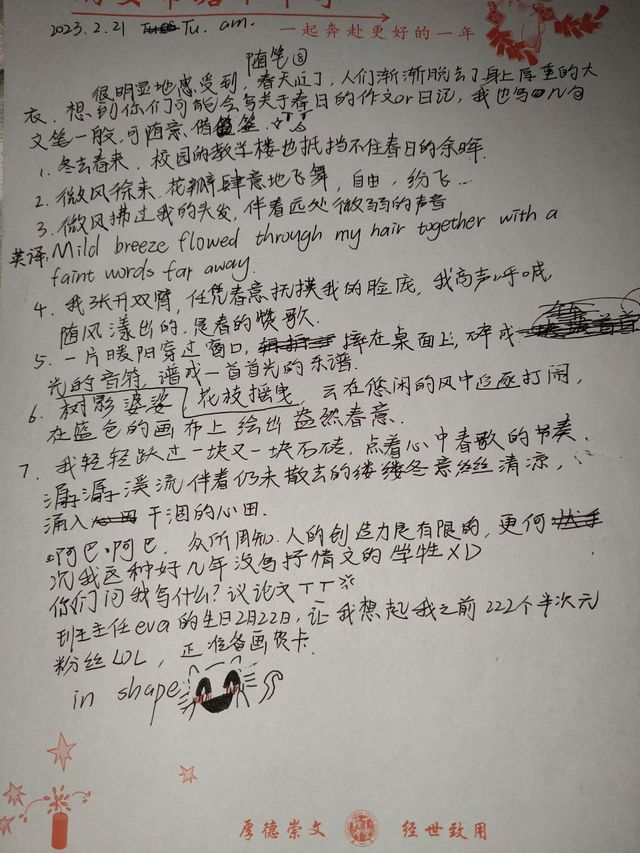 2023.2.21 Tu. am.
一起奔赴更好的一年
随笔⑧
很明显地感受到，春天近了，人们渐渐脱去了身上厚重的大
衣，想到你们可能会写关于春日的作文or日记，我也写几句
文笔一般，可随意借鉴
1. 冬去春来，校园的教学楼也抵挡不住春日的余晖.
2. 微风徐来，花瓣肆意地飞舞，自由，纷飞…
3. 微风拂过我的头发，伴着远处微弱的声音
英译: Mild breeze flowed through my hair together with a
faint words far away.
4. 我张开双臂，任凭春意抚摸我的脸庞，我高声呼喊，
随风漾出的，是春的赞歌.
5. 一片暖阳穿过窗口，摔在桌面上，碎成
光的音符，谱成一首首光的乐谱.
6. 树影婆娑，花枝摇曳，云在悠闲的风中追逐打闹，
在蓝色的画布上绘出盎然春意.
7. 我轻轻跃过一块又一块石砖，点着心中春歌的节奏，
潺潺溪流伴着仍未散去的缕缕冬意丝丝清凉，
涌入干涸的心田.
阿巴阿巴，众所周知，人的创造力是有限的，更何
况我这种好几年没写抒情文的学牲XD
你们问我写什么？议论文TT※
班主任eva的生日2月22日，让我想起我之前222个半次元
粉丝LOL，正准备画贺卡.
in shape
厚德崇文 经世致用